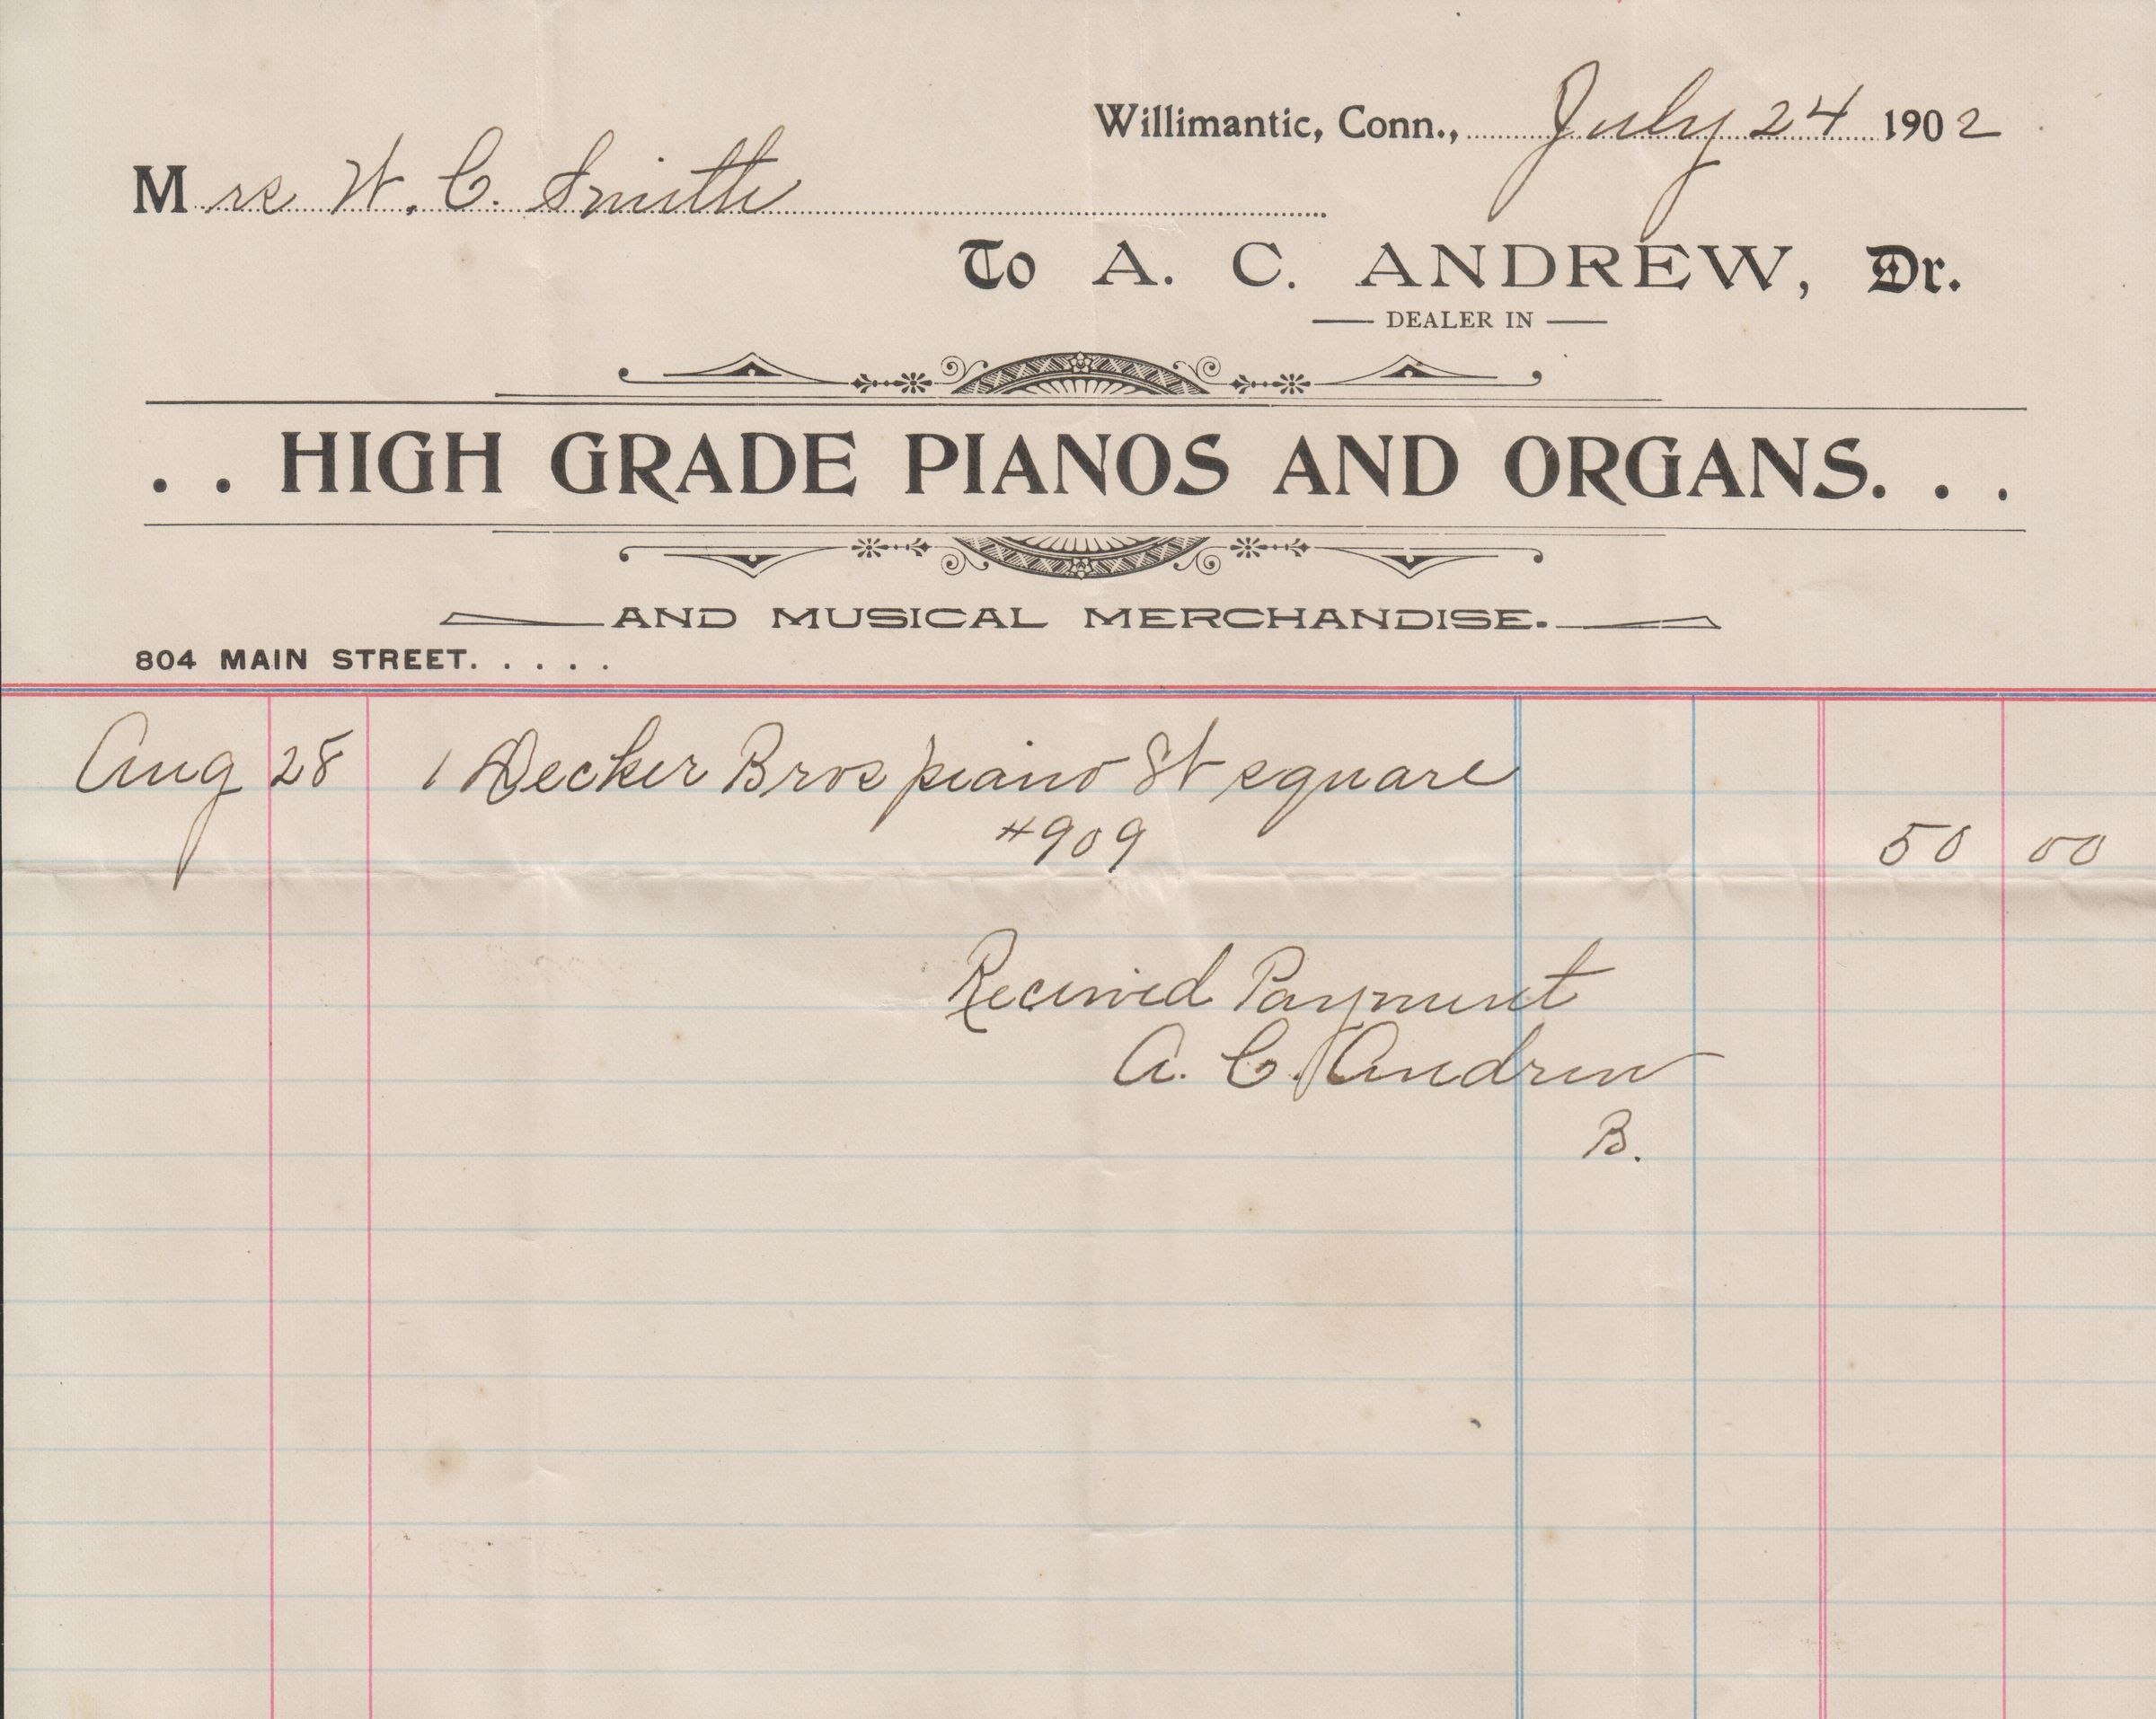 Willimantic, Conn., July 24 1902
Mrs W. C. Smith
To A. C. ANDREW, Dr.
DEALER IN
. . HIGH GRADE PIANOS AND ORGANS. . .
AND MUSICAL MERCHANDISE.
804 MAIN STREET. . . . .
Aug 28 1 Decker Bros piano St square
#909 50 00
Received Payment
A. C. Andrew
B.